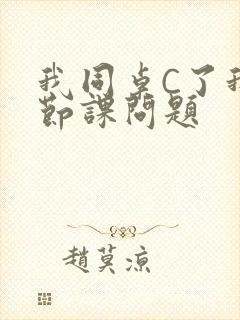 我同桌C了我
節課問題
趙莫涼